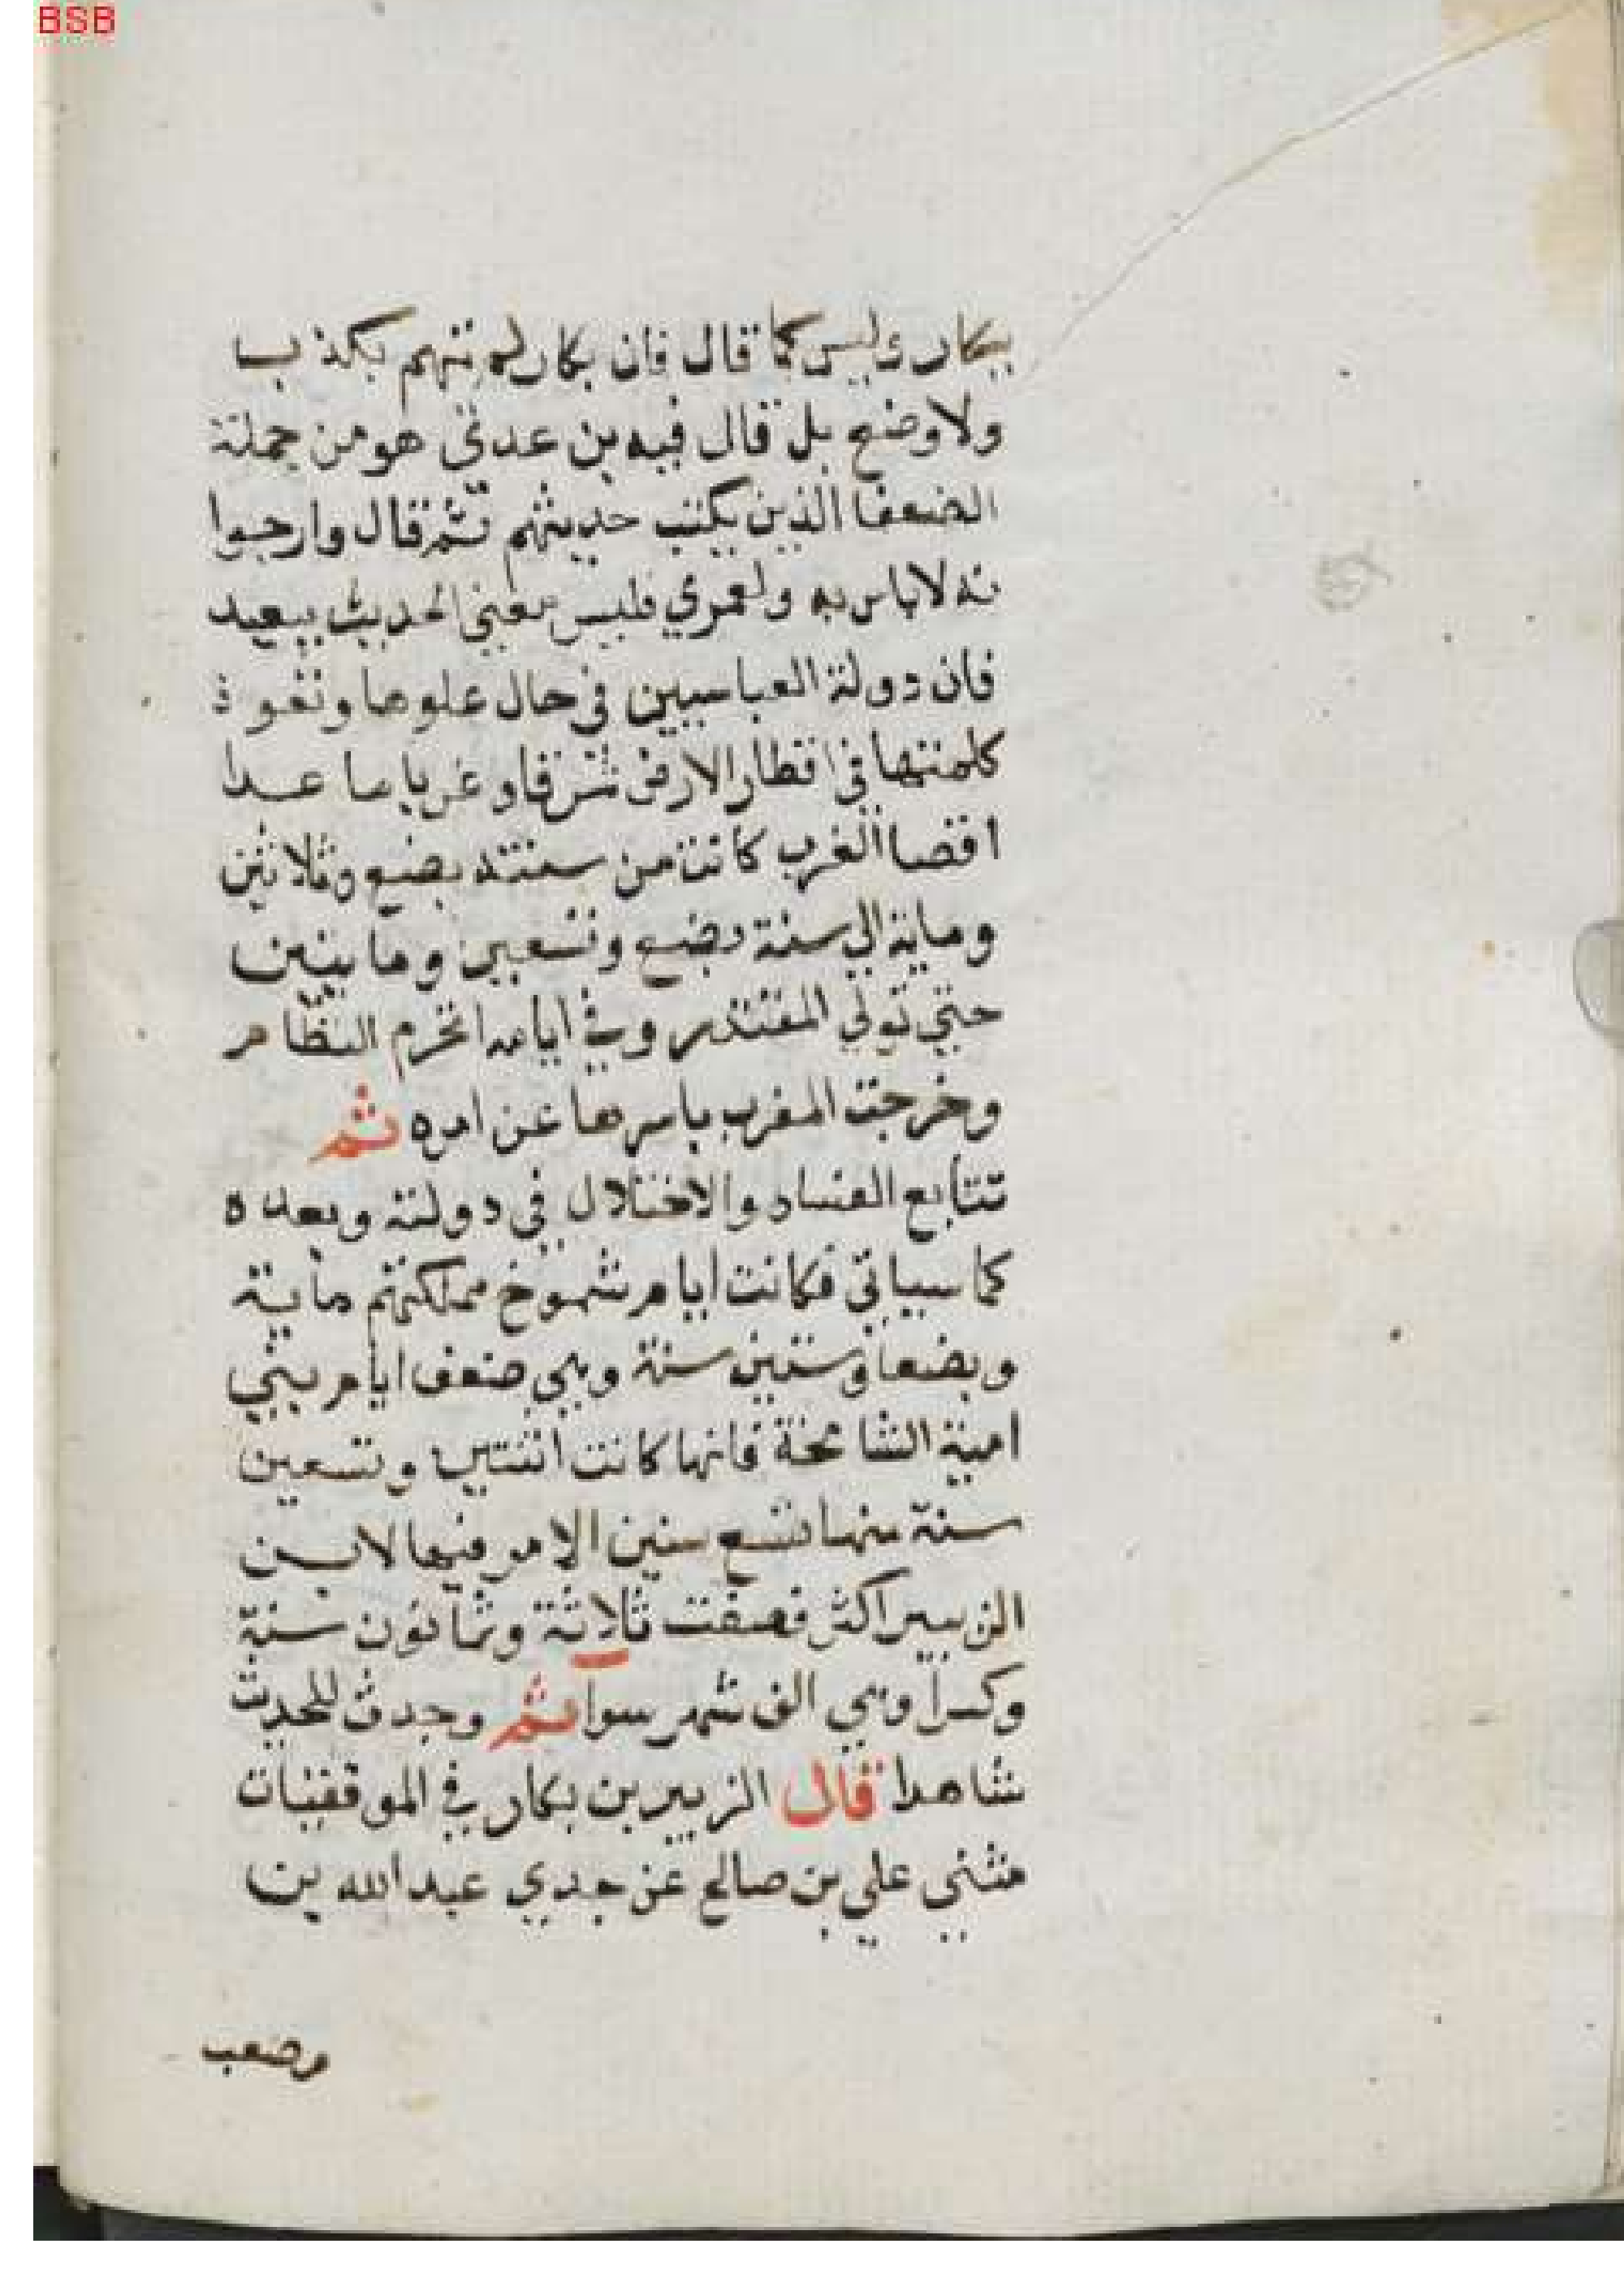 BSB
ببكار وليس كما قال فان بكار لم يتهم بكذب
ولا وضع بل قال فيه بن عدي هو من جملة
الضعفا الذين يكتب حديثهم ثم قال وارجوا
نه لا باس به ولعمري فليس معني الحديث ببعيد
فان دولة العباسيين في حال علوها ونفوذ
كلمتها في اقطار الارض شرقا وغربا ما عدا
اقصا الغرب كانت من سنته بضع وثلاثين
وماية الي سنة بضع وتسعين ومايتين
حتي تولي المقتدر وفي ايامه انخرم النظام
وخرجت المغرب باسرها عن امره ثم
تتابع الفساد والاختلال في دولته وبعده
كما سياتي فكانت ايام شموخ مملكتهم ماية
وبضعا وستين سنة وهي ضعف ايام بني
امية الشامخة فانها كانت اثنتين وتسعين
سنة منها تسع سنين الامر فيها لابن
الزبير اكثر فصفت ثلاثة وثمانون سنة
وكسرا وهي الف شهر سوا ثم وجدت للحديث
شاهدا قال الزبير بن بكار في الموفقيات
حدثني علي بن صالح عن جدي عبد الله بن
مصعب